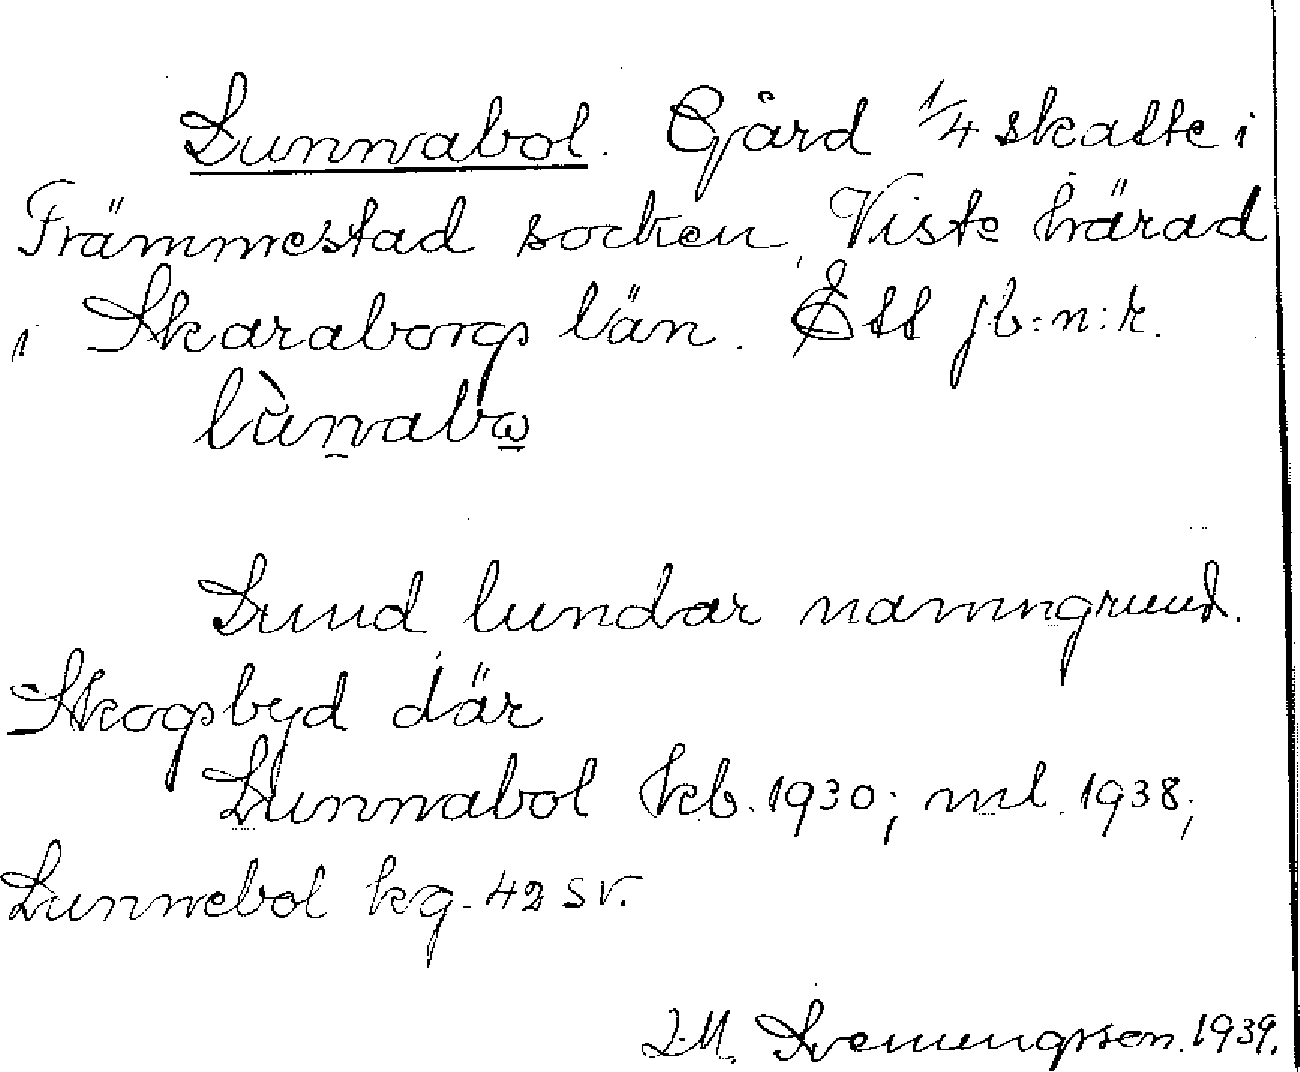 Lunnabol. Gård 1/4 skatte i
Främmestad socken, Viste härad
i Skaraborgs län. Ett jb:n:r.
lùn̰abω̲
Lund lundar namngrund.
Skogsbyd där
Lunnabol kb. 1930; ml. 1938;
Lunnebol kg. 42 SV.
1939.